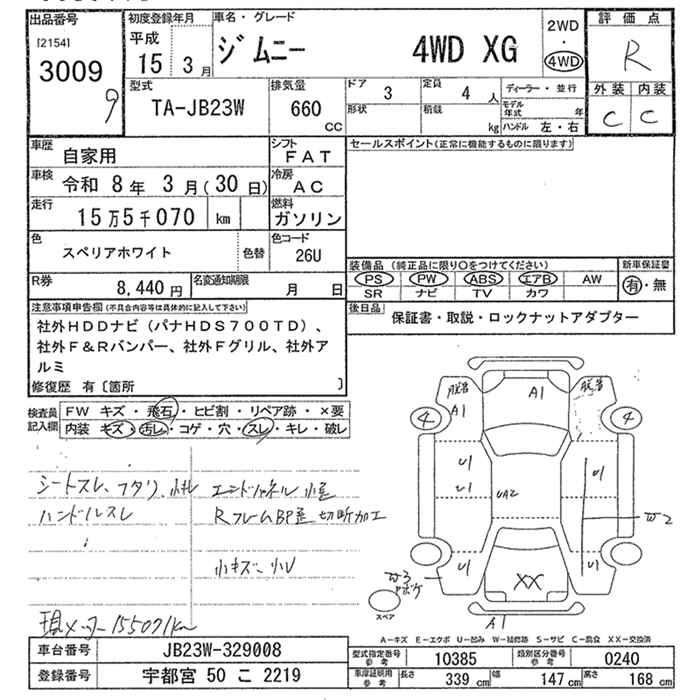 出品番号
[2154]
3009
9
初度登録年月
平成
15 3月
車名・グレード
ジムニー 4WD XG
2WD
・
4WD
評価点
R
外装 内装
C C
型式
TA-JB23W
排気量
660
CC
ドア
3
定員
4人
形状
積載
kg
ディーラー・並行
モデル年式 年
ハンドル 左・右
車歴
自家用
シフト
FAT
車検
令和 8年 3月(30日)
冷房
AC
走行
15万5千070 km
燃料
ガソリン
色
スペリアホワイト
色替
色コード
26U
R券
8,440円
名変通知期限
月 日
セールスポイント(正常に機能するものに限ります)
装備品(純正品に限り○をつけてください)
PS PW ABS エアB AW
SR ナビ TV カワ
新車保証書
有・無
後日品
保証書・取説・ロックナットアダプター
注意事項申告欄(不具合内容等は具体的に記入して下さい)
社外HDDナビ(パナHDS700TD)、
社外F&Rバンパー、社外Fグリル、社外ア
ルミ
修復歴 有〔箇所 〕
検査員記入欄
FW キズ・飛石・ヒビ割・リペア跡・×要
内装 キズ・汚レ・コゲ・穴・スレ・キレ・破レ
シートスレ、フタリ、小キレ
ハンドルスレ
エンドパネル 小歪
RフレームBP歪 切断加工
小キズ、小U
現メーター155071km
脱着
A1
A1
脱着
4
4
U1
U1
UA2
U1
W2
W3
U1
U1
XX
A1
スペア
A-キズ E-エクボ U-凹み W-補修跡 S-サビ C-腐食 XX-交換済
車台番号
JB23W-329008
登録番号
宇都宮 50 こ 2219
型式指定番号
参考
10385
類別区分番号
参考
0240
車庫証明用
参考
長さ
339 cm
幅
147 cm
高さ
168 cm